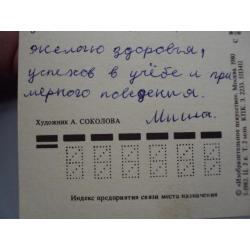 желаю здоровья,
успехов в учёбе и при
мерного поведения.
Миша.
Художник А. СОКОЛОВА
Индекс предприятия связи места назначения
© «Изобразительное искусство». Москва. 1980